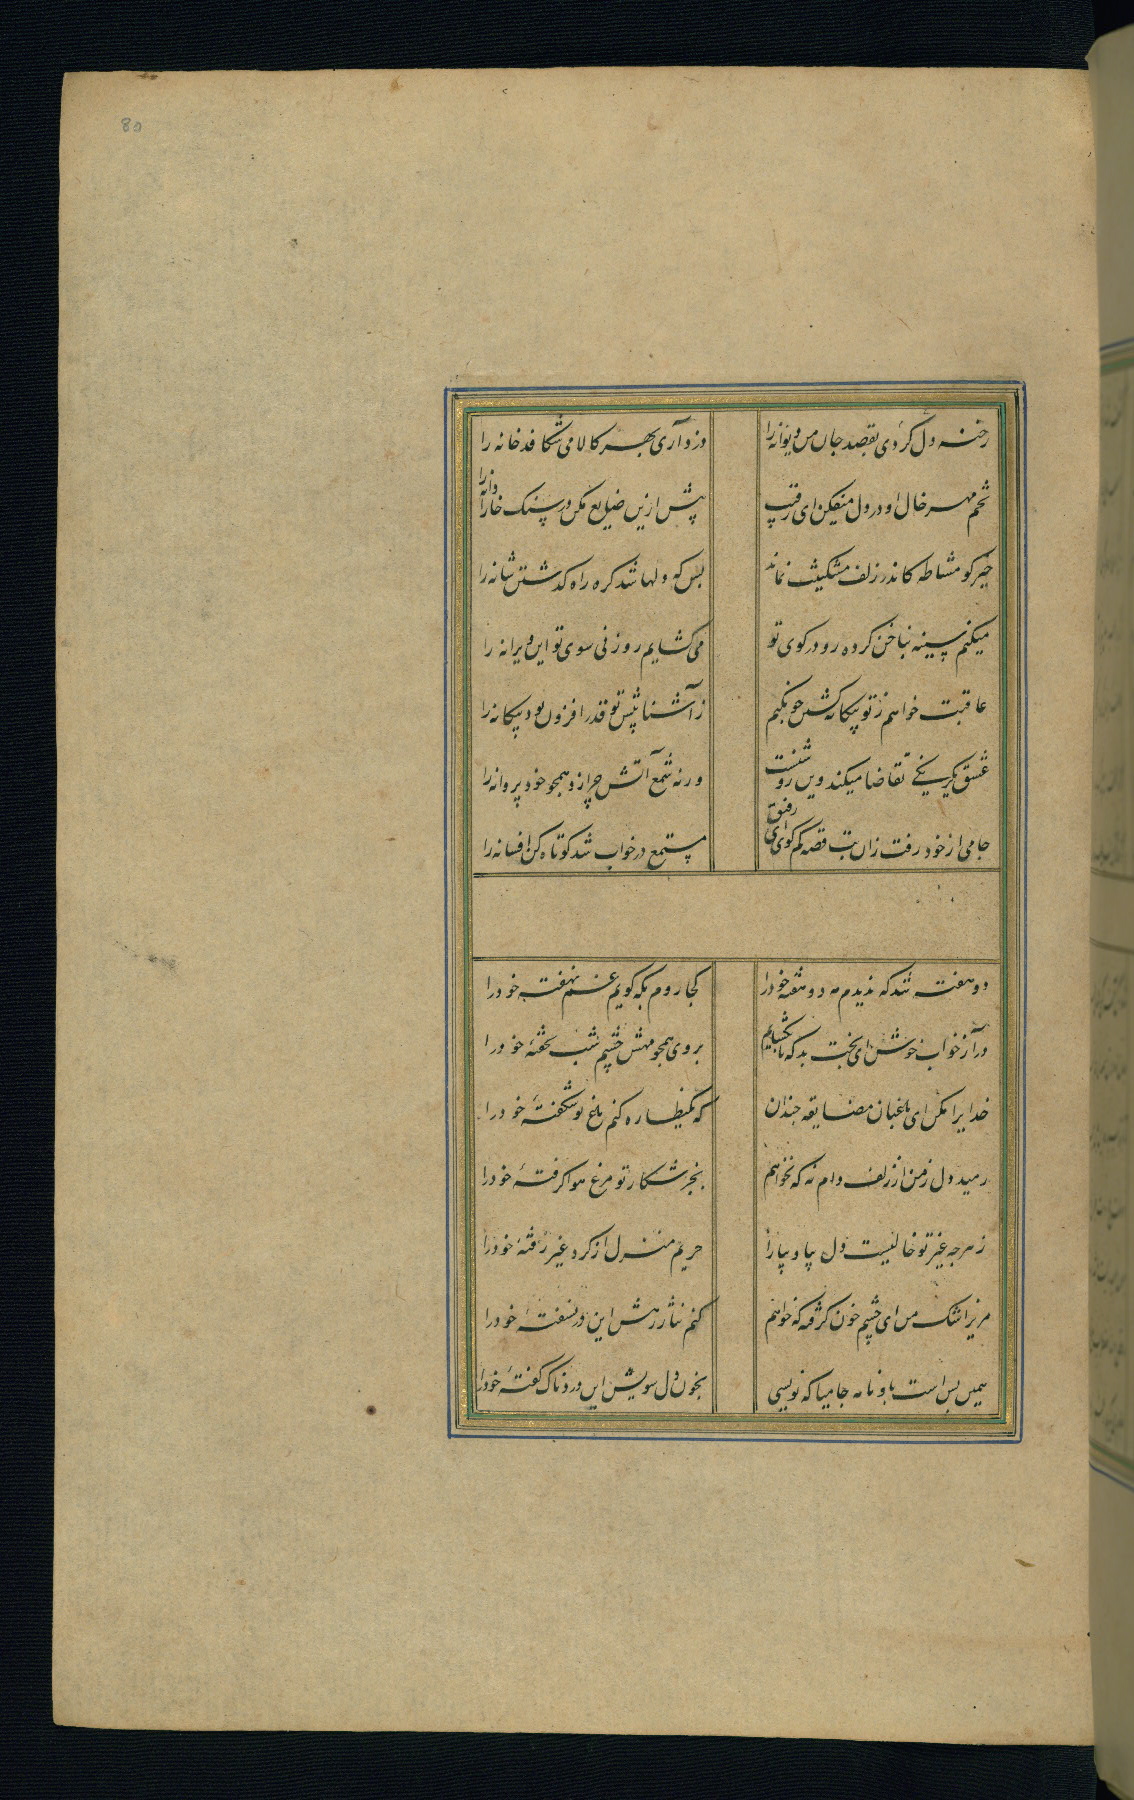 80
رخنه دل کردی بقصد جان من دیوانه را دزد آری بهر کالا می شکافد خانه را
تخم مهر خال او در دل میفکن ای رقیب پیش ازین ضایع مکن در سنگ خارا دانه را
خیز کو مشاطه کاندر زلف مشکینش نماند بس که دلها شد گره راه گذشتن شانه را
میکنم سینه بناخن کرده رو در کوی تو می کشایم روزنی سوی تو این ویرانه را
عاقبت خواهم ز تو بیکانه کشتن چو نکنم ز آشنا پیش تو قدر افزون بود بیکانه را
عشق یکرنکی تقاضا میکند وین روشنست ورنه شمع آتش چرا زد همچو خود پروانه را
جامی از خود رفت زان بت قصه کم کوی ای رفیق مستمع در خواب شد کوتاه کن افسانه را
دو هفته شد که ندیدم مه دو هفته خود را کجا روم بکه کویم غم نهفته خود را
درآ ز خواب خوش ای بخت بد که باز کشایم بروی همچو مهش چشم شب نخفته خود را
خدایرا مکن ای باغبان مضایقه چندان که یکنظاره کنم باغ نو شکفته خود را
رمید دل ز من از زلف دام نه که نخواهم بجز شکار تو مرغ هوا کرفته خود را
ز هرچه غیر تو خالیست دل بیا و بیارا حریم منزل از کرد غیر رفته خود را
مریز اشک من ای چشم خون کرفته که خواهم کنم نثار رهش این در نسفته خود را
همین بس است باو نامه جامیا که نویسی بخون دل سویش این درد ناک کفته خود را